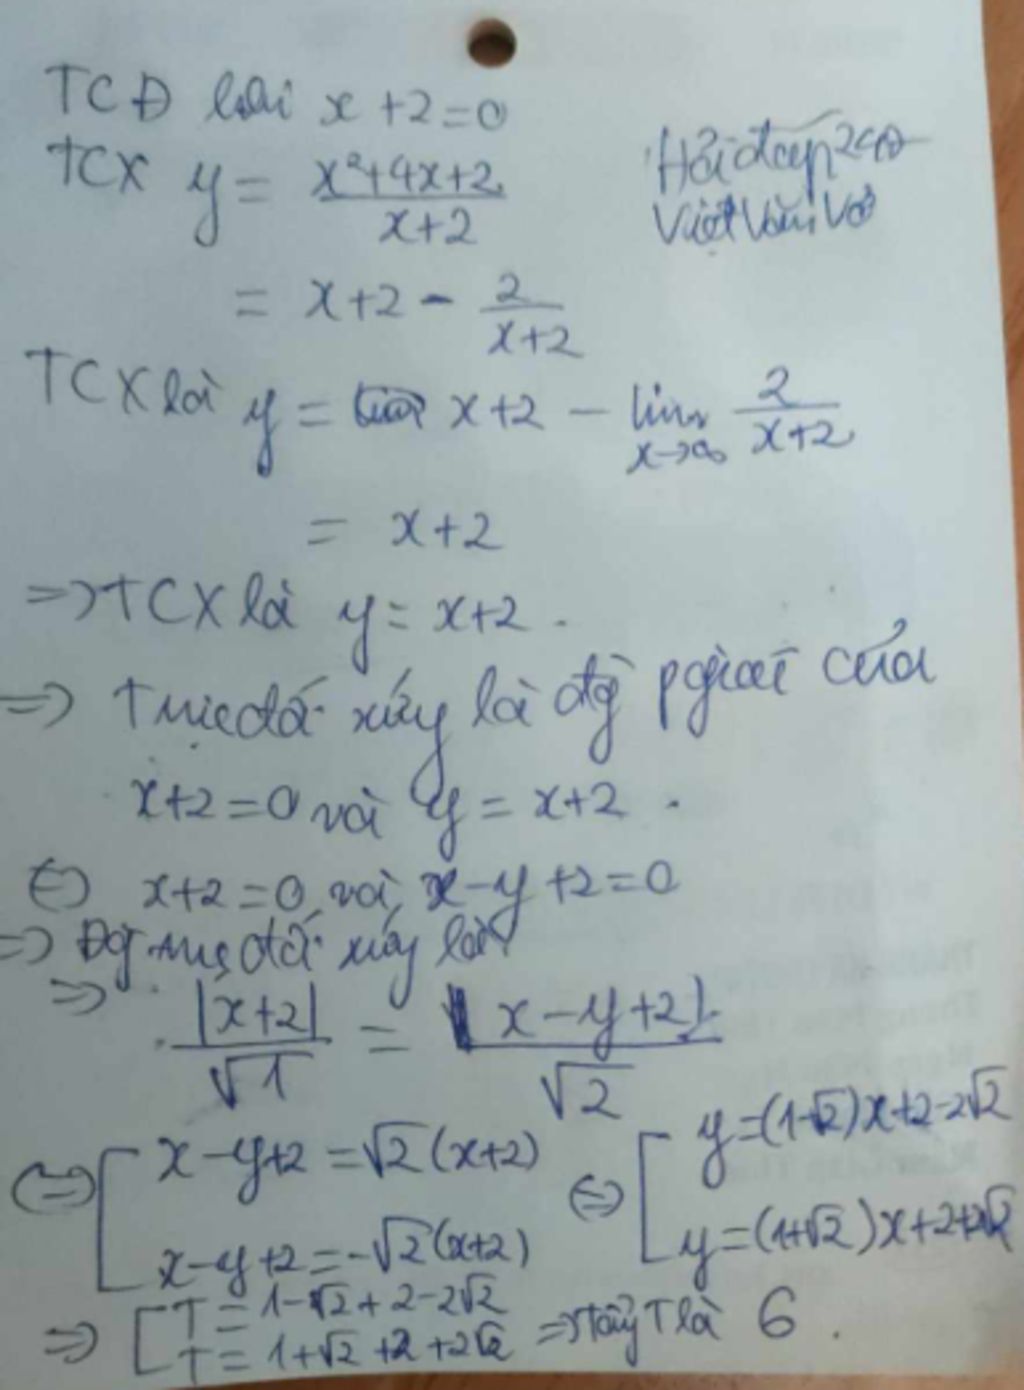 TCĐ là x+2=0
TCX y = \frac{x²+4x+2}{x+2}
Hỏi đáp 24
Việt Văn Vở
= x+2 - \frac{2}{x+2}
TCX là y = x+2 - \lim_{x→∞} \frac{2}{x+2}
= x+2
=> TCX là y = x+2.
=> Trục đối xứng là đg pgiác của
x+2=0 và y = x+2.
<=> x+2=0 và x-y+2=0
=> Đg trục đối xứng là
=> \frac{|x+2|}{√1} = \frac{|x-y+2|}{√2}
<=> [ x-y+2 = √2(x+2) <=> [ y=(1-√2)x+2-2√2
x-y+2 = -√2(x+2) y=(1+√2)x+2+2√2
=> [ T = 1-√2+2-2√2
T = 1+√2+2+2√2 => tổng T là 6.